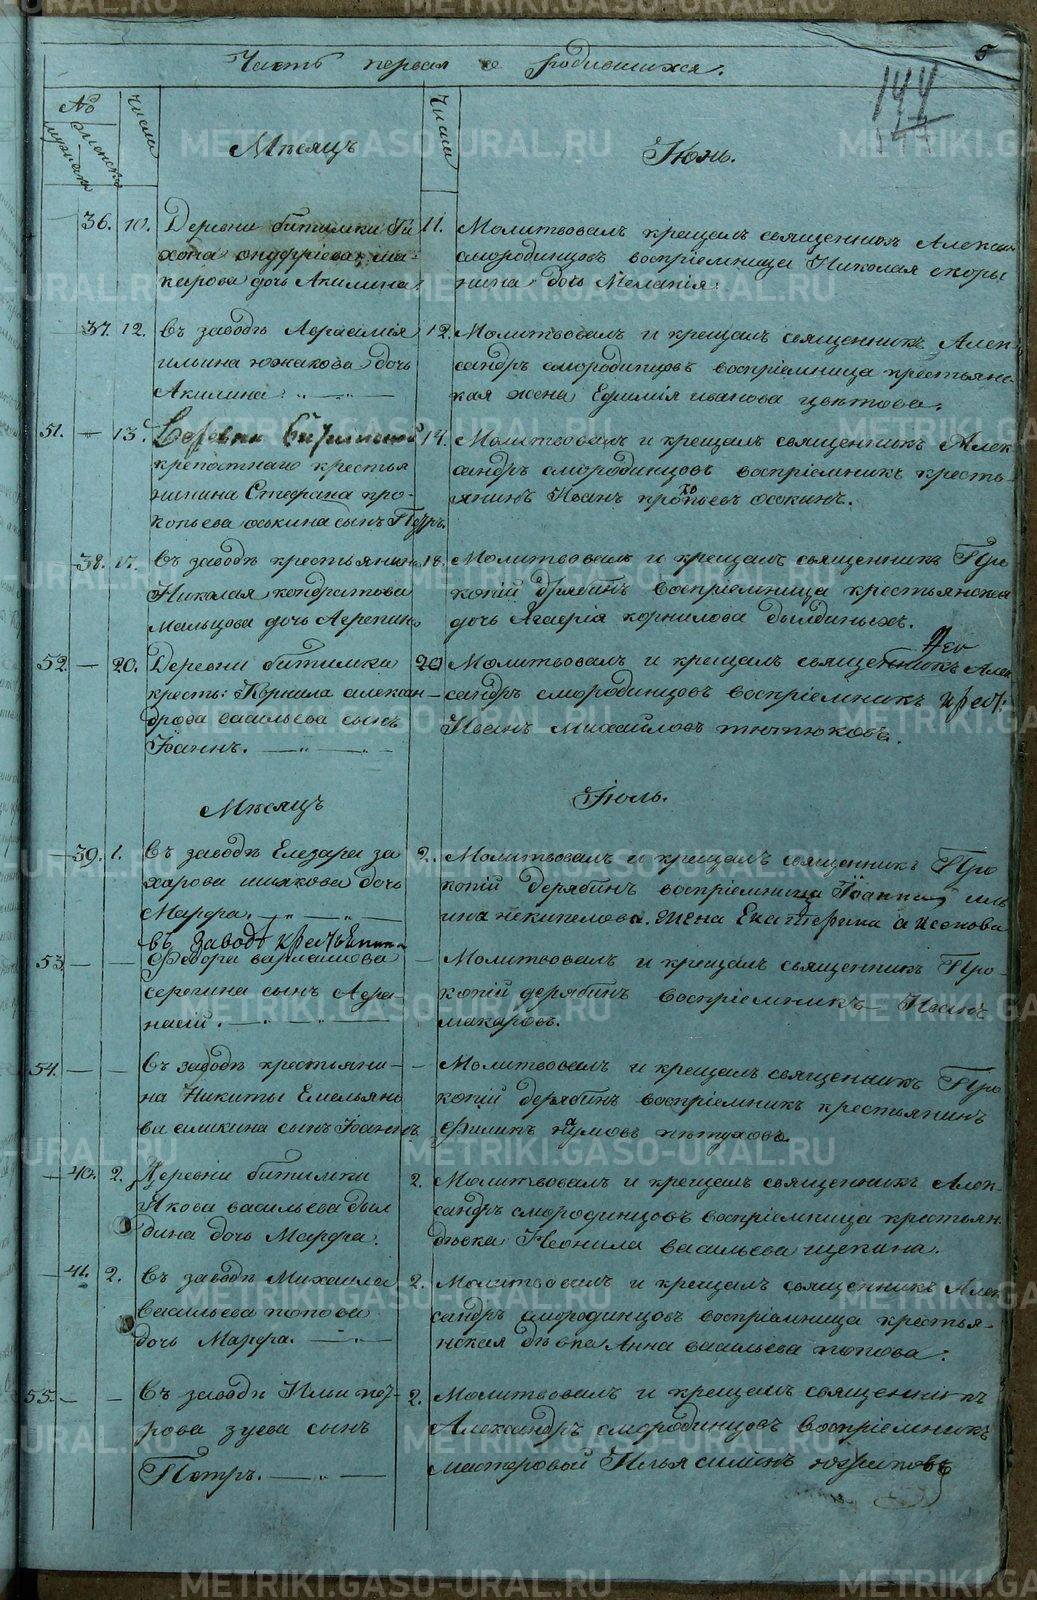 5
144
Часть первая о родившихся.
№
мужеска
женска
Числа
Числа
Мѣсяцъ
Іюнь.
36. 10. Деревни битимки Ти
хона онуфріева ма
карова дочь Акилина
11. Молитвовалъ крещалъ священник Алекса
смородинцовъ воспріемница Николая скоры
нина дочь Меланія.
37. 12. Въ заводѣ Аврасимія
ильина южакова дочь
Акилина.
12. Молитвовалъ и крещалъ священникъ Алек
сандръ смородинцовъ воспріемница крестьянс
кая жена Ефимія иванова цвѣтова.
51. — 13. Деревни битимской
крепостнаго крестья
нинина Стефана про
копьева оськина сынъ Петръ.
14. Молитвовалъ и крещалъ священникъ Алек
сандръ смородинцовъ воспріемникъ кресть
янинъ Иванъ прокопьевъ оскинъ.
38. 17. Въ заводѣ крестьянина
Николая кондратова
Мальцова дочь Агрепина
18. Молитвовалъ и крещалъ священникъ Про
копій дрябинъ воспріемница крестьянская
дочь Агафія корнилова былдиныхъ.
52. — 20. Деревни битимка
кресть: Корнила алексан
дрова васильева сынъ
Іоаннъ.
20 Молитвовалъ и крещалъ священникъ Алек
сандръ смородинцовъ воспріемникъ крест:
Иванъ Михайловъ тютюковъ.
Мѣсяцъ
Іюль.
39. 1. Въ заводѣ Елезара за
харова шлякова дочь
Марфа.
2. Молитвовалъ и крещалъ священникъ Про
копій дерябинъ воспріемница Іоанна иль
ина некипелова. жена Екатерина аксенова
въ заводѣ крестьянина
53. — — Федора варламова
серегина сынъ Афа
насій.
— Молитвовалъ и крещалъ священникъ Про
копій дерябинъ воспріемникъ Иванъ
макаровъ.
54. — — Въ заводѣ крестьяни
на Никиты Емельяно
ва силкина сынъ Іоаннъ.
— Молитвовалъ и крещалъ священникъ Про
копій дерябинъ воспріемникъ крестьянинъ
Филипъ наумовъ пѣтуховъ.
40. 2. Деревни битимки
Якова васильева был
дина дочь Марфа.
2. Молитвовалъ и крещалъ священникъ Алек
сандръ смородинцовъ воспріемница крестьян.
дѣвка Неонила васильева щепина.
41. 2. Въ заводѣ Михаила
васильева попова
дочь Марфа.
2. Молитвовалъ и крещалъ священникъ Алек
сандръ смородинцовъ воспріемница крестья
нская дѣвка Анна васильева попова.
55. — — Въ заводѣ Ильи пет
рова зуева сынъ
Петръ.
2. Молитвовалъ и крещалъ священникъ
Александръ смородинцовъ воспріемникъ
мастеровой Илья силинъ
METRIKI.GASO-URAL.RU